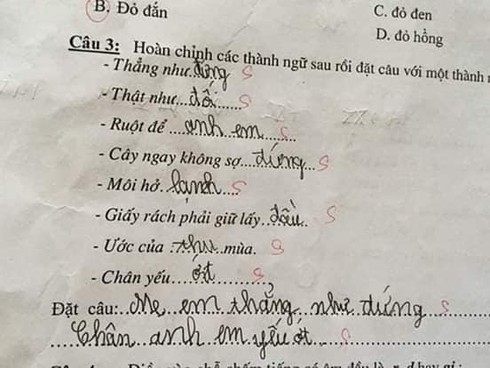 B. Đỏ đắn
C. đỏ đen
D. đỏ hồng
Câu 3: Hoàn chỉnh các thành ngữ sau rồi đặt câu với một thành
- Thẳng như...đứng S
- Thật như...đối......S
- Ruột để ....anh em....S
- Cây ngay không sợ...đứng...S
- Môi hở..lạnh S
- Giấy rách phải giữ lấy..đầu. S
- Ước của .thu.mùa. S
- Chân yếu....ớt........S
Đặt câu:..Mẹ..em thẳng..như đứng S
...Chân..anh em yếu ớt....S